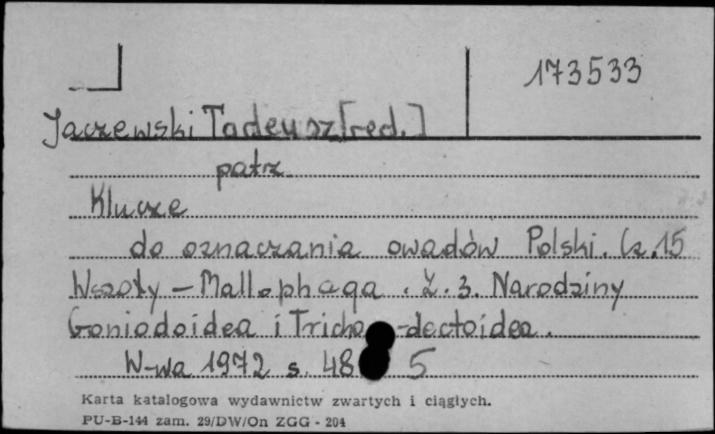 173533
Jaczewski Tadeusz [red.]
patrz
Klucze
do oznaczania owadów Polski. Cz. 15
Wszoły - Mallophaga. Z. 3. Narodziny
Goniodoidea i Tricho-dectoidea.
W-wa 1972 s. 48 5
Karta katalogowa wydawnictw zwartych i ciągłych.
PU-B-144 zam. 29/DW/On ZGG - 204